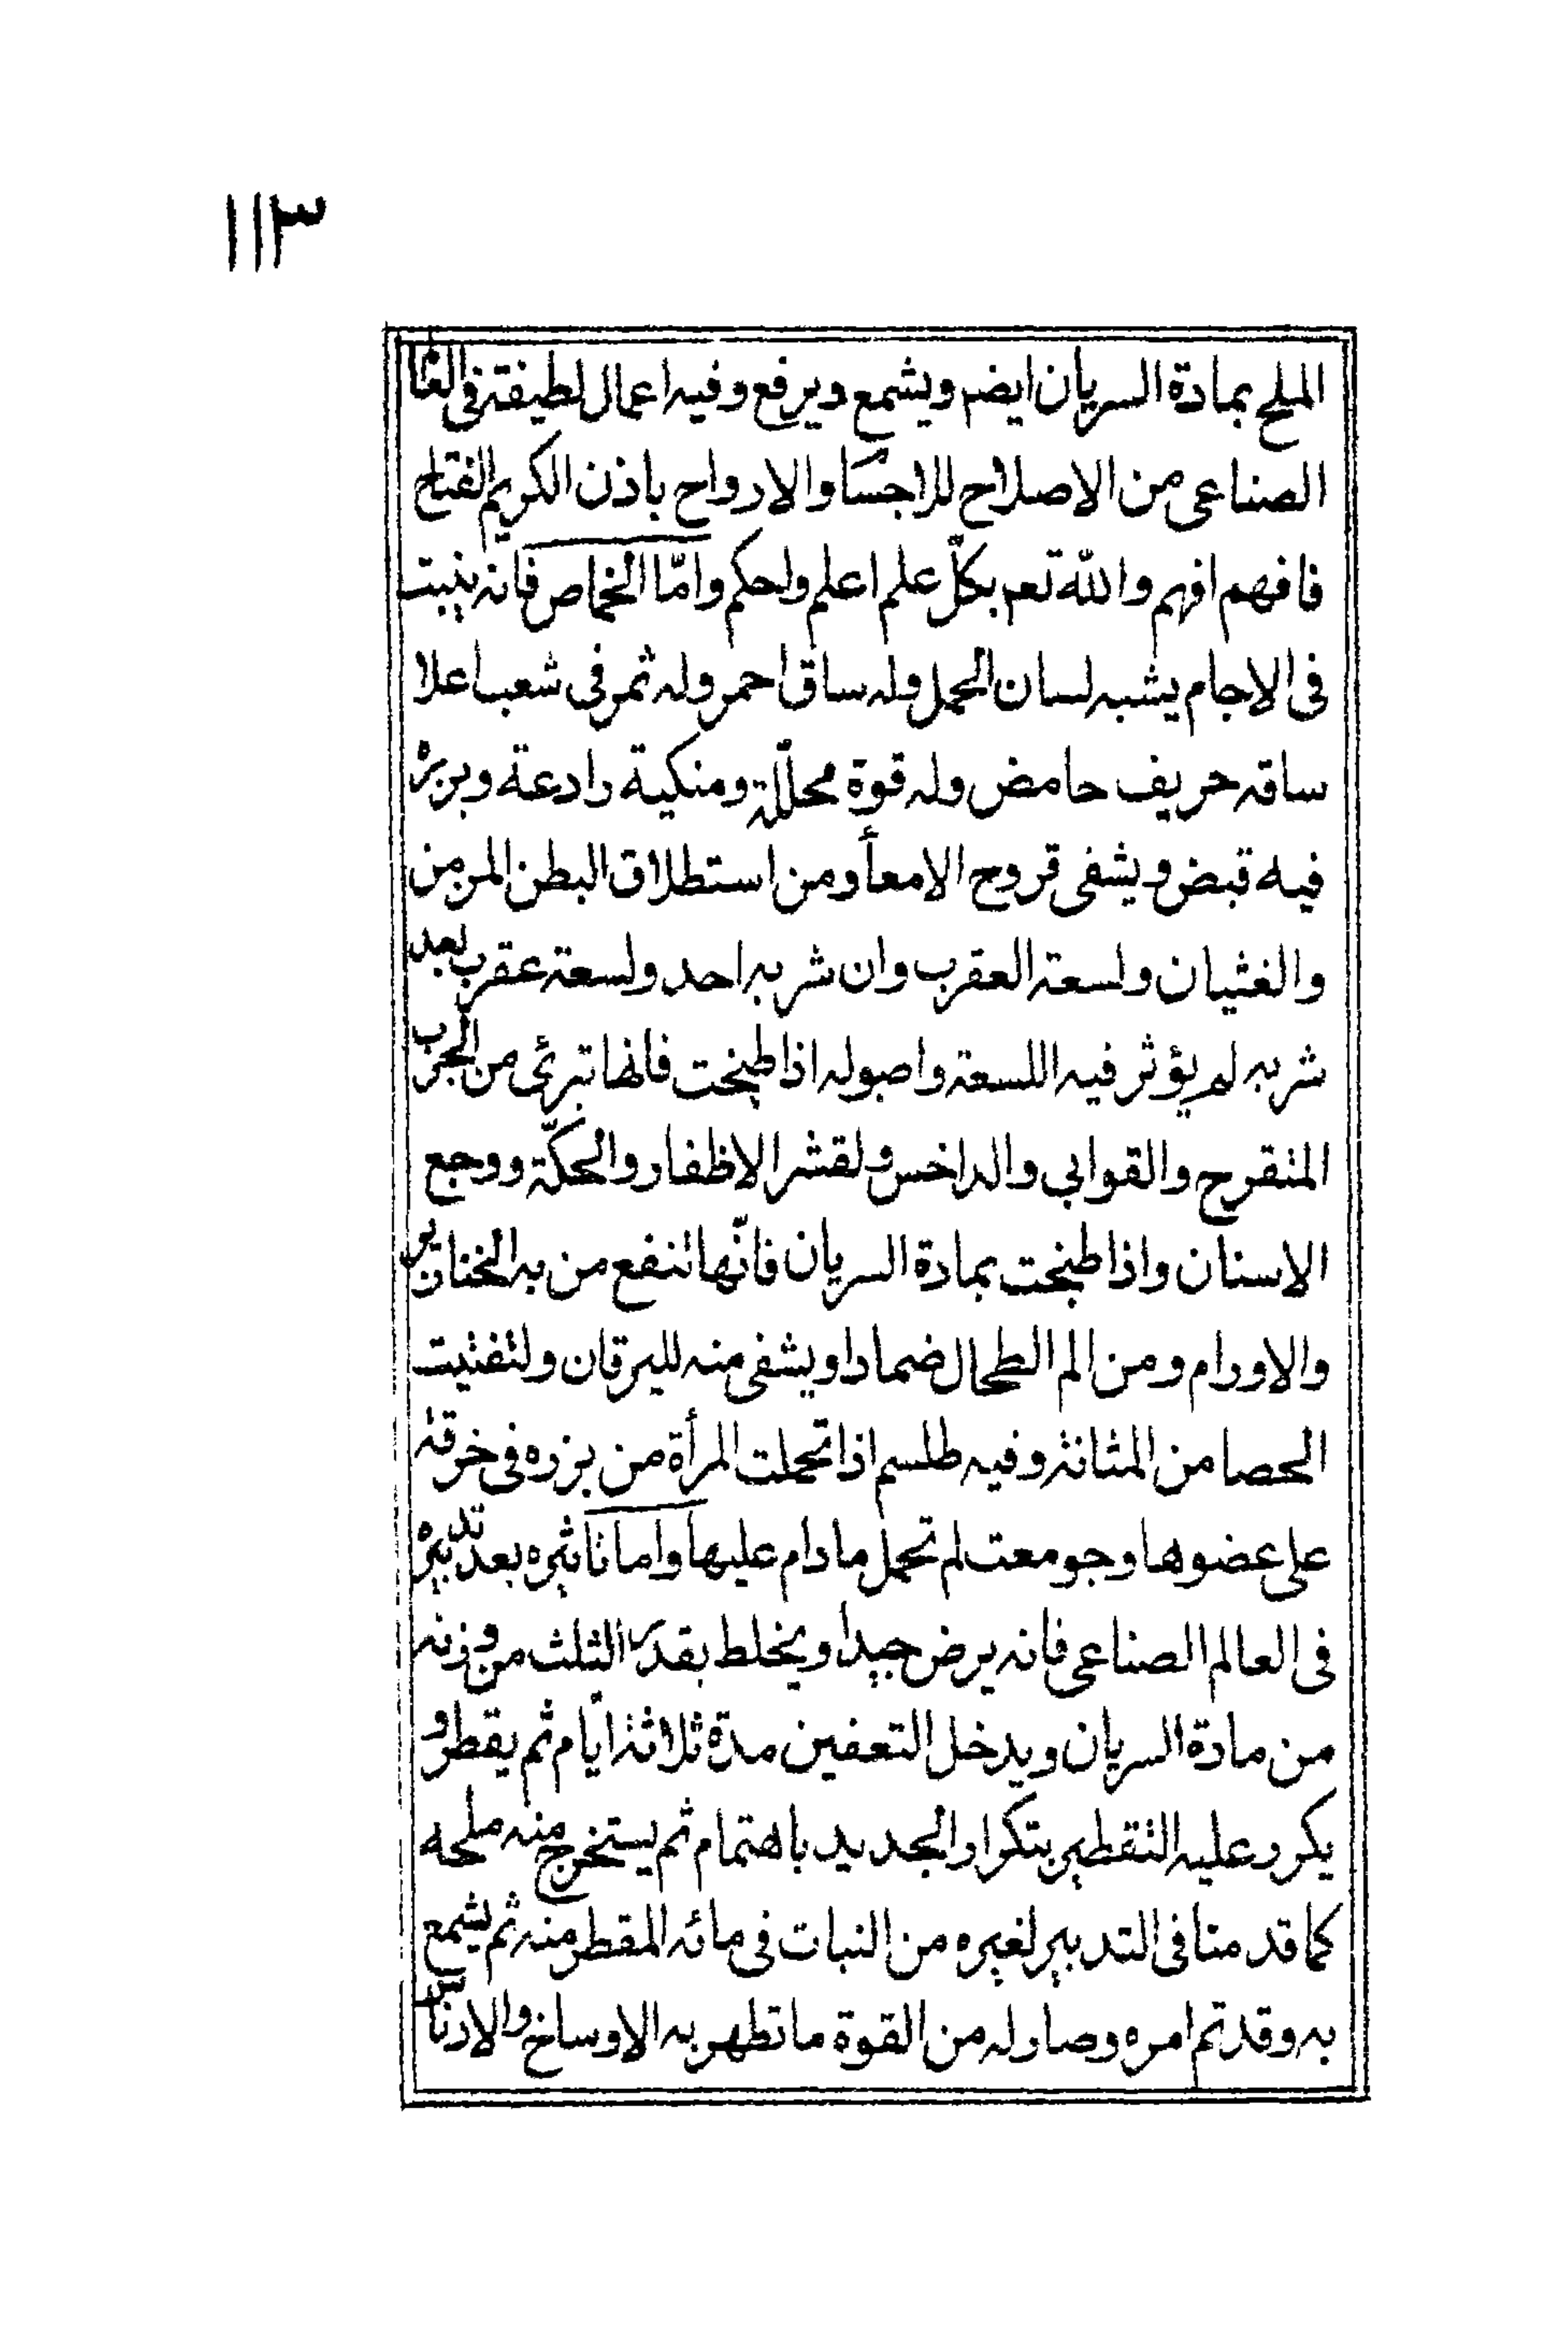 ١١٣
الملح بمادة السريان ايضم ويشمع ويرفع وفيه اعمال لطيفة فى العا
الصناعى من الاصلاح للاجسا والارواح باذن الكريم الفتاح
فافهم افهم والله تعم بكلّ علم اعلم واحكم وامّا الخماص فانه ينبت
فى الاجام يشبه لسان الحمل وله ساق احمر وله ثمر فى شعب اعلا
ساقه حريف حامض وله قوة محلّلة ومنكية رادعة وبزره
فيه قبض ويشفى قروح الامعأ ومن استطلاق البطن المزمن
والغثيان ولسعة العقرب وان شربه احد ولسعة عقرب بعد
شربه لم يؤثر فيه اللسعة واصوله اذا طبخت فانها تبرئ من الجرب
المتقرح والقوابى والداخس ولقشر الاظفار والحكّة ووجع
الاسنان واذا طبخت بمادة السريان فانّها تنفع من به الخنازير
والاورام ومن الم الطحال ضمادا ويشفى منه لليرقان ولتفتيت
الحصا من المثانة وفيه طلسم اذا تحملت المرأة من بزره فى خرقة
على عضوها وجومعت لم تحمل ما دام عليها واما تاثيره بعد تدبيره
فى العالم الصناعى فانه يرض جيدا ويخلط بقدر الثلث من وزنه
من مادة السريان ويدخل التعفين مدة ثلاثة ايّام ثم يقطر و
يكرر عليه التقطير بتكرار الجديد باهتمام ثم يستخرج منه ملحه
كما قد منا فى التدبير لغيره من النبات فى مائه المقطر منه ثم يشمع
به وقد تم امره وصار له من القوة ما تطهر به الاوساخ والادناس